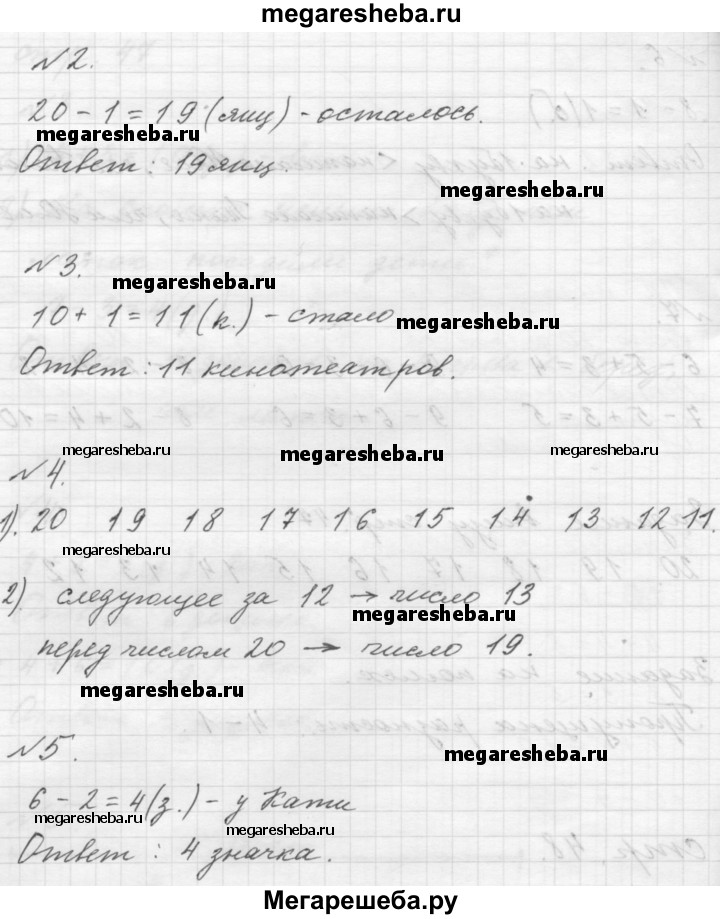 megaresheba.ru
№2.
20 - 1 = 19 (яиц) - осталось.
megaresheba.ru
Ответ: 19 яиц.
megaresheba.ru
№3.
megaresheba.ru
10 + 1 = 11 (к.) - стало
megaresheba.ru
Ответ: 11 кинотеатров.
megaresheba.ru megaresheba.ru megaresheba.ru
№4.
1). 20 19 18 17 16 15 14 13 12 11.
megaresheba.ru
2) следующее за 12 → число 13
megaresheba.ru
перед числом 20 → число 19.
megaresheba.ru
№5.
megaresheba.ru
6 - 2 = 4 (з.) - у Кати
megaresheba.ru
megaresheba.ru
Ответ: 4 значка.
Мегарешеба.ру